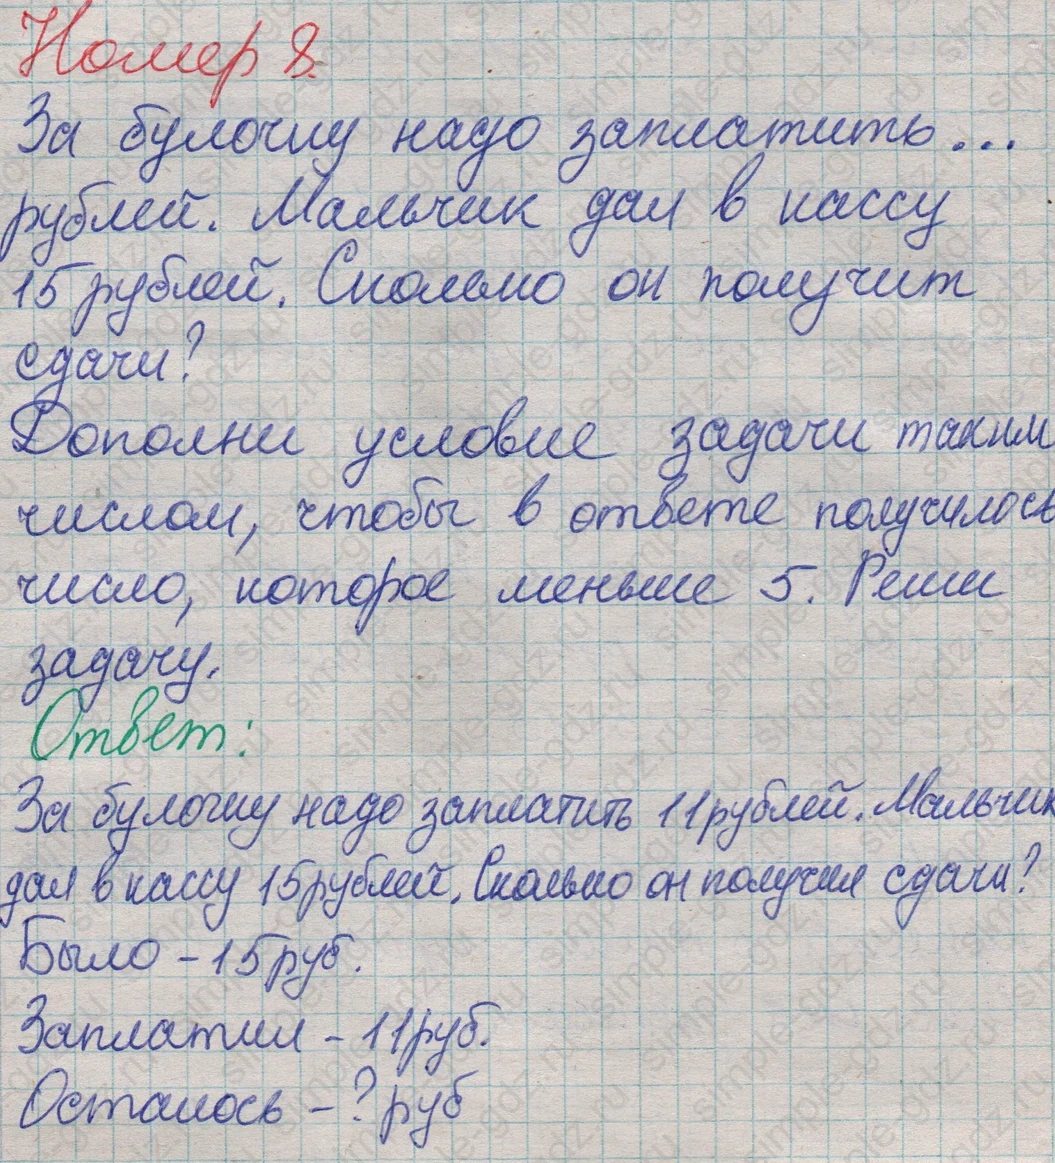 Номер 8.
За булочку надо заплатить...
рублей. Мальчик дал в кассу
15 рублей. Сколько он получит
сдачи?
Дополни условие задачи таким
числом, чтобы в ответе получилось
число, которое меньше 5. Реши
задачу.
Ответ:
За булочку надо заплатить 11 рублей. Мальчик
дал в кассу 15 рублей. Сколько он получил сдачи?
Было - 15 руб.
Заплатил - 11 руб.
Осталось - ? руб